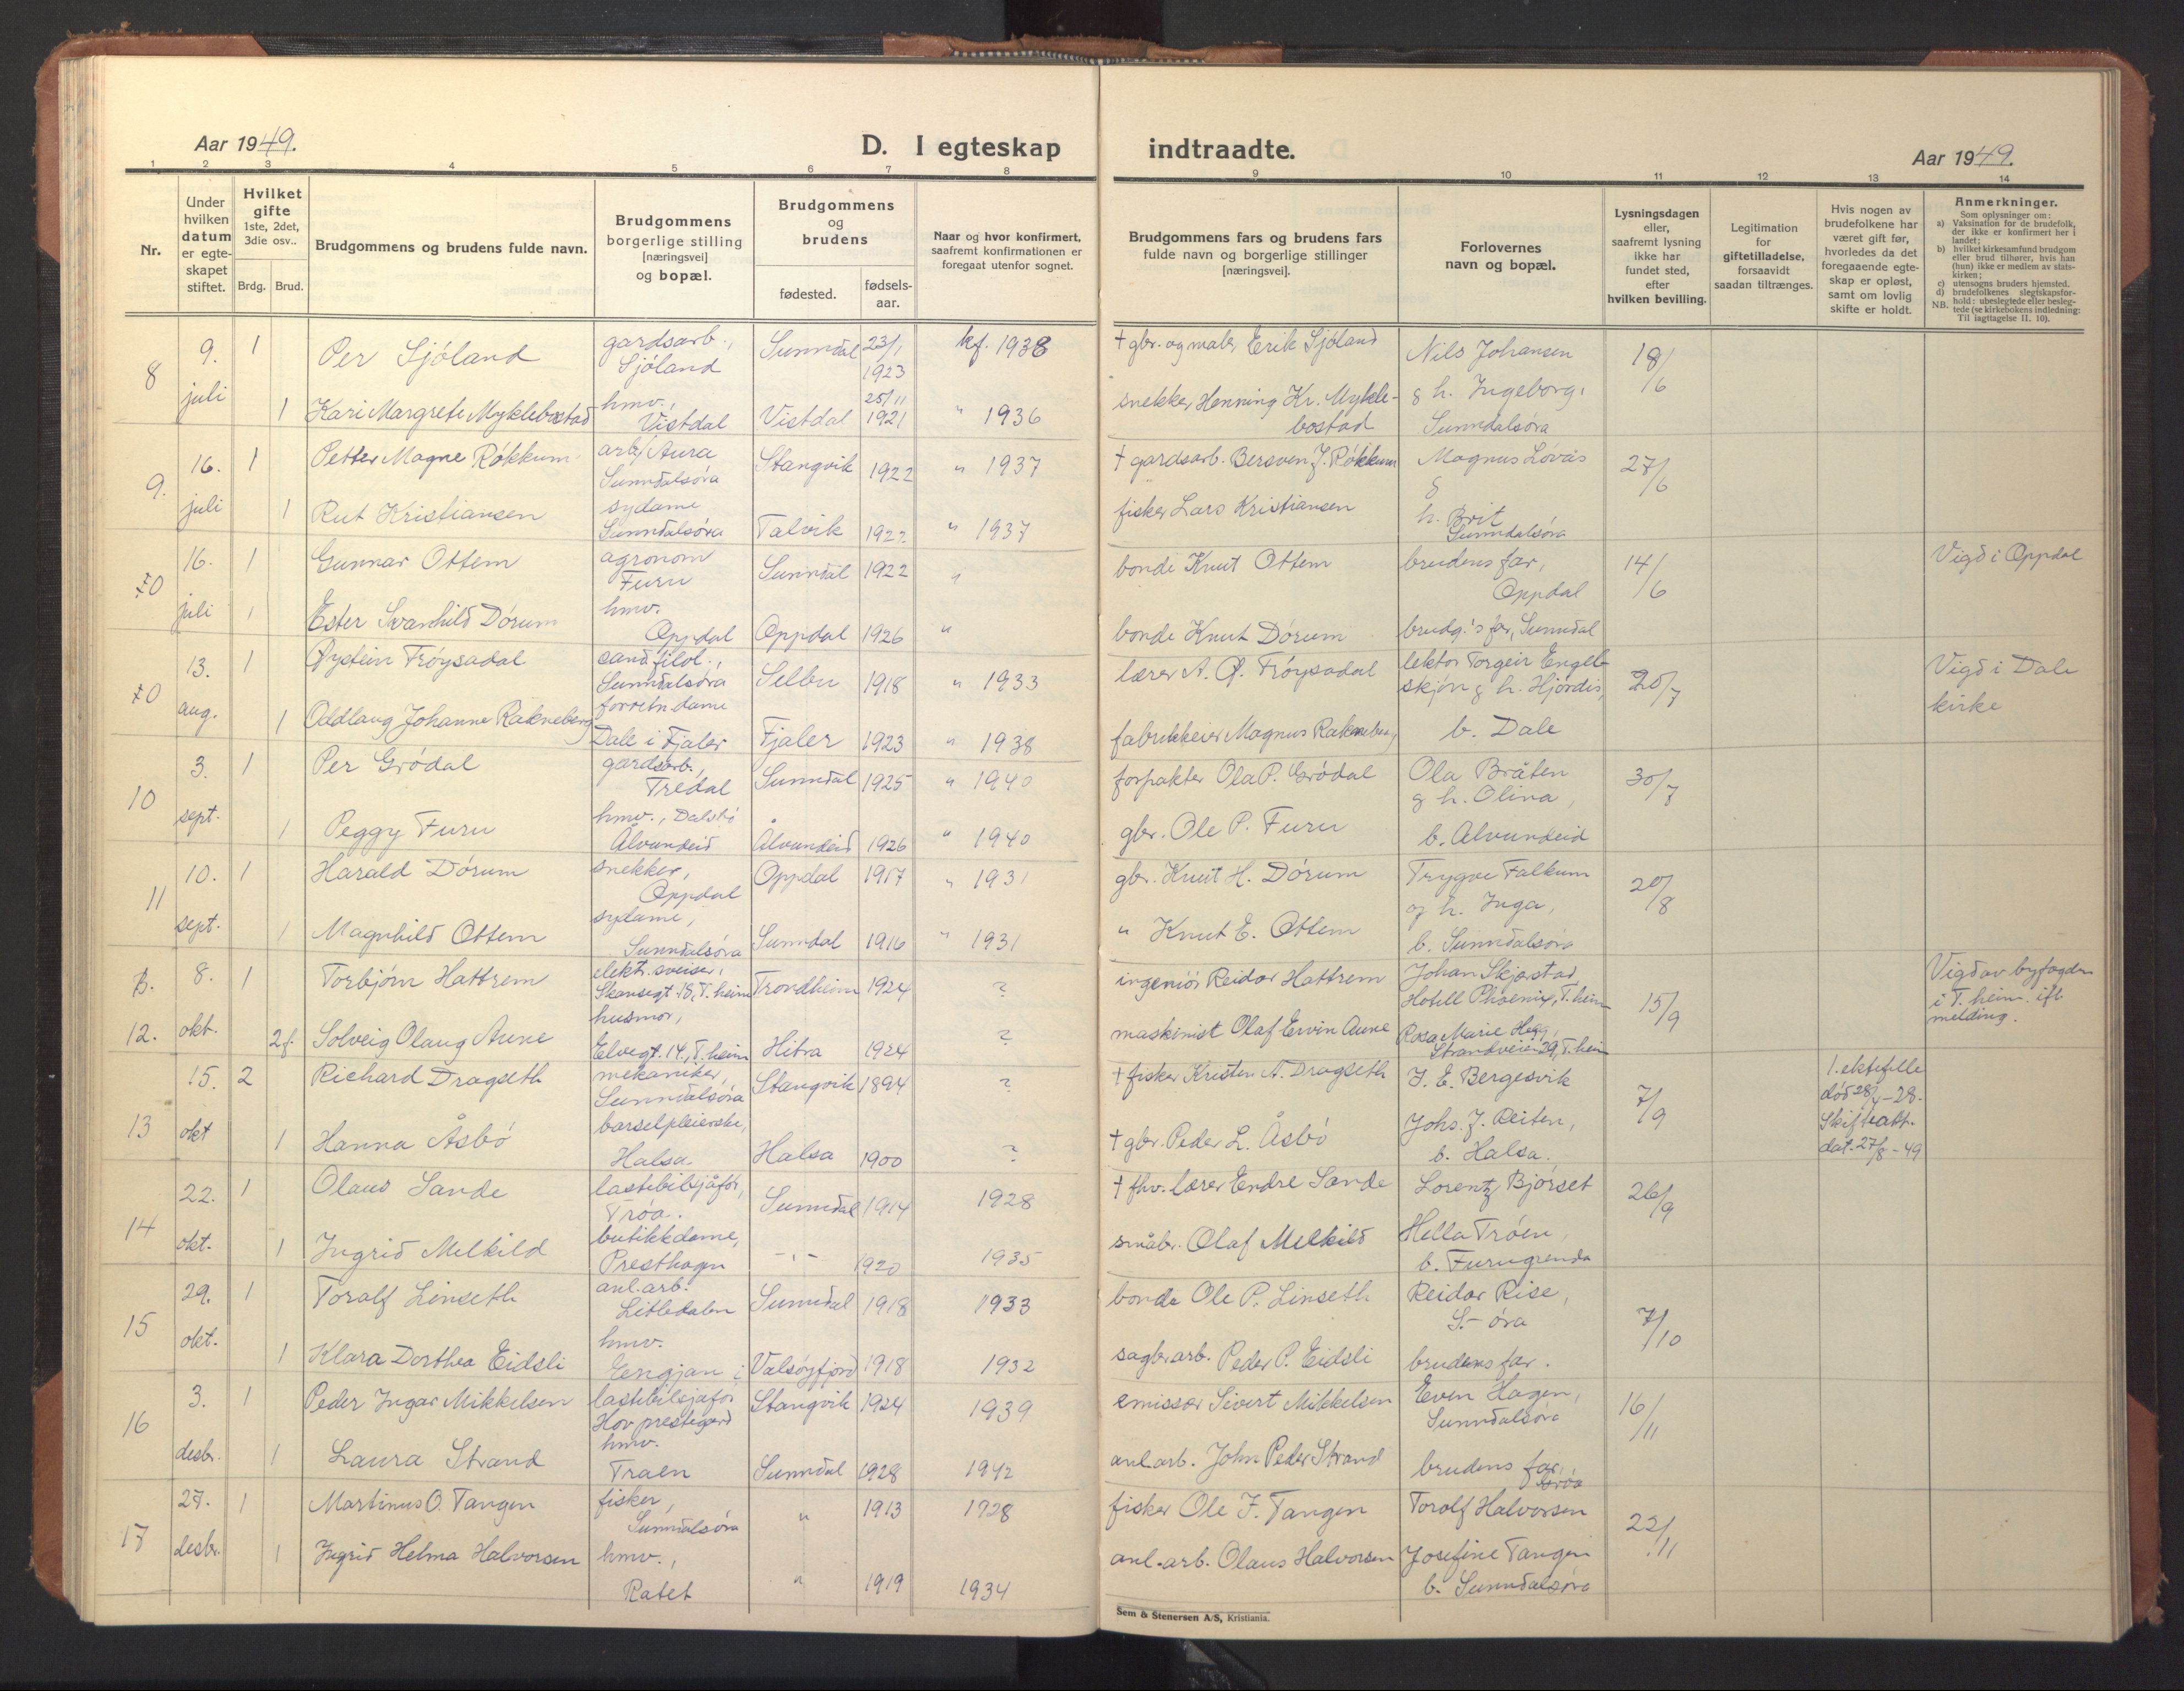 Aar 1949.
D. I egteskap
indtraadte.
Aar 1949.
1 2 3 4 5 6 7 8 9 10 11 12 13 14
Nr.
Under hvilken datum er egte-skapet stiftet.
Hvilket gifte 1ste, 2det, 3die osv..
Brdg. Brud.
Brudgommens og brudens fulde navn.
Brudgommens borgerlige stilling [næringsvei] og bopæl.
Brudgommens og brudens
fødested.
fødsels-aar.
Naar og hvor konfirmert, saafremt konfirmationen er foregaat utenfor sognet.
Brudgommens fars og brudens fars fulde navn og borgerlige stillinger [næringsvei].
Forlovernes navn og bopæl.
Lysningsdagen eller, saafremt lysning ikke har fundet sted, efter hvilken bevilling.
Legitimation for giftetilladelse, forsaavidt saadan tiltrænges.
Hvis nogen av brudefolkene har været gift før, hvorledes da det foregaaende egte-skap er opløst, samt om lovlig skifte er holdt.
Anmerkninger.
Som oplysninger om:
a) Vaksination for de brudefolk, der ikke er konfirmert her i landet;
b) hvilket kirkesamfund brudgom eller brud tilhører, hvis han (hun) ikke er medlem av stats-kirken;
c) utensogns bruders hjemsted.
d) brudefolkenes slegtskapsfor-hold: ubeslegtede eller besleg-tede (se kirkebokens indledning: Til iagttagelse II. 10).
NB.
8 9. juli 1 Per Sjóland gardsarb., Sjóland Sunndal 23/1 1923 kf. 1938 † gbr. og maler Erik Sjóland Nils Johansen 18/6
1 Kari Margrete Myklebostad hmv., Vistdal Vistdal 25/11 1921 " 1936 snekker Henning Kr. Myklebostad & h. Ingeborg, Sunndalsóra
9. 16. juli 1 Petter Magne Rókkum arb./Aura Sunndalsóra Stangvik 1922 " 1937 † gardsarb. Bersven J. Rókkum Magnus Lóvås & 27/6
1 Rut Kristiansen sydame Sunndalsóra Talvik 1922 " 1937 fisker Lars Kristiansen h. Brit Sunndalsóra
10 16. juli 1 Gunnar Ottem agronom Furu Sunndal 1922 " bonde Knut Ottem brudens far, Oppdal 14/6 Vigd i Oppdal
1 Ester Svanhild Dórum hmv. Oppdal Oppdal 1926 " bonde Knut Dórum brudg.'s far, Sunndal
10 13. aug. 1 Øystein Tróysadal cand filol., Sunndalsóra Selbu 1918 " 1933 lærer A. Ø. Tróysadal lektor Torgeir Engelskjón & h. Hjórdis, 20/7 Vigd i Dale kirke
1 Oddlaug Johanne Rakneberg forretn dame Dale i Fjaler Fjaler 1923 " 1938 fabrikkeier Magnus Rakneberg b. Dale
10 3. sept. 1 Per Gródal gardsarb., Tredal Sunndal 1925 " 1940 forpakter Ola P. Gródal Ola Bråten & h. Olina, 30/7
1 Peggy Furu hmv., Dalsbó Ålvundeid Ålvundeid 1926 " 1940 gbr. Ole P. Furu b. Ålvundeid
11 10. sept. 1 Harald Dórum snekker, Oppdal Oppdal 1917 " 1931 gbr. Knut H. Dórum Trygve Falkum og h. Inga, 20/8
1 Magnhild Ottem sydame, Sunndalsóra Sunndal 1916 " 1931 " Knut E. Ottem b. Sunndalsóra
B. 12. 8. okt. 1 Torbjórn Hattrem elektr. sveiser, Skansegt 18, T. heim Trondheim 1924 ? ingeniór Reidar Hattrem Johan Skjerstad, Hotell Phoenix, T. heim 15/9 Vigd av byfogden i T. heim. ifl melding.
2 f. Solveig Olaug Aune husmor, Elvegt. 14, T. heim Hitra 1924 ? maskinist Olaf Ervin Aune Rosa Marie Hegg, Strandveien 29, T. heim
13 15. okt 2 Richard Dragseth mekaniker, Sunndalsóra Stangvik 1894 ? † fisker Kristen A. Dragseth J. E. Bergesvik 7/9 1. ektefelle dód 28/4-28. Skifteatt. dat. 27/8-49
1 Hanna Åsbó barselpleierske, Halsa. Halsa 1900 ? † gbr. Peder L. Åsbó Johs. J. Reiten, b. Halsa.
14 22. okt. 1 Olaus Sande lastebilsjåfór, Tróa. Sunndal 1914 1928 † fhv. lærer Endre Sande Lorentz Bjórset 26/9
1 Ingrid Melkild butikkdame, Presthagen -"- 1920 1935 småbr. Olaf Melkild Hella Tróen, b. Furugrenda
15 29. okt. 1 Toralf Linseth anl. arb. Litledalen Sunndal 1918 1933 bonde Ole P. Linseth Reidar Rise, S.-óra 7/10
1 Klara Dorthea Eidsli hmv. Engjan i Valsóyfjord 1918 1932 sagbr.arb. Peder P. Eidsli brudens far.
16 3. desbr. 1 Peder Ingar Mikkelsen lastebilsjåfór Hov prestegard Stangvik 1924 1939 emissær Sivert Mikkelsen Even Hagen, Sunndalsóra 16/11
1 Laura Strand hmv. Traen Sunndal 1928 1942 anl. arb. John Peder Strand brudens far,
17 27. desbr. 1 Martinus O. Tangen fisker, Sunndalsóra " 1913 1928 fisker Ole J. Tangen Toralf Halvorsen 22/11
1 Ingrid Helma Halvorsen hmv., Ratet " 1919 1934 anl.arb. Olaus Halvorsen Josefine Tangen b. Sunndalsóra
Sem & Stenersen A/S, Kristiania.